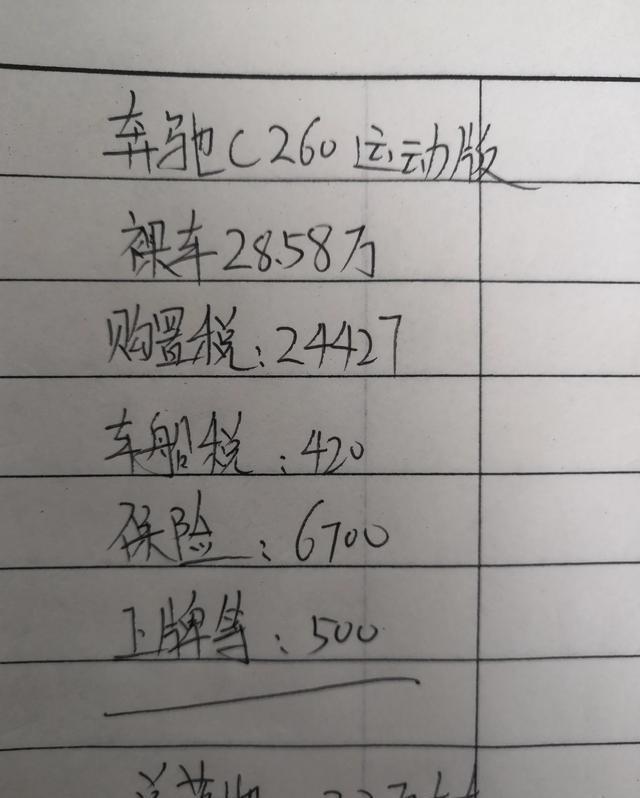 奔驰C260运动版
裸车28.58万
购置税:24427
车船税:420
保险:6700
上牌等:500